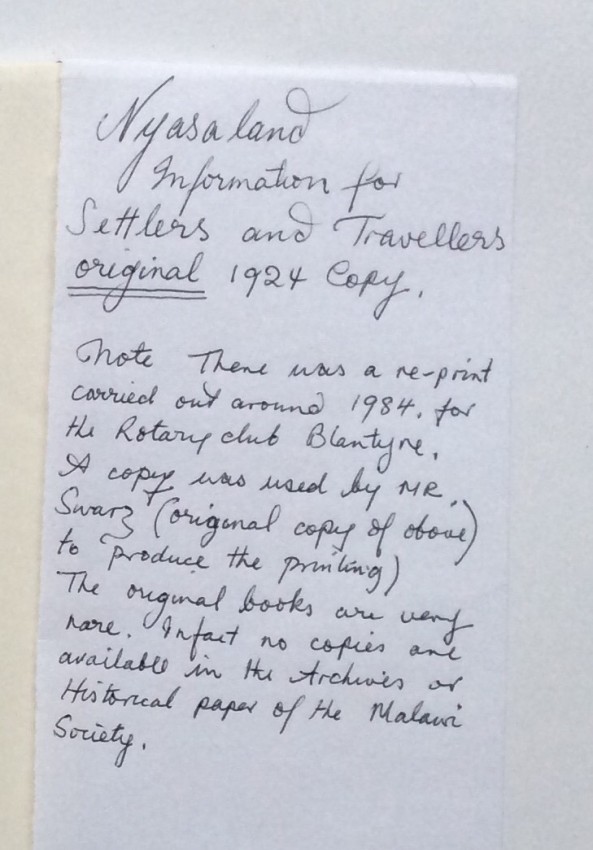 Nyasaland
Information for
Settlers and Travellers
original 1924 Copy.
Note There was a re-print
carried out around 1984. for
the Rotary club Blantyre.
A copy was used by MR.
Swarz (original copy of above)
to produce the printing)
The original books are very
rare. Infact no copies are
available in the Archives or
Historical paper of the Malawi
Society.